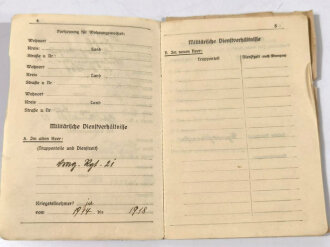 4
Fortsetzung für Wohnungswechsel:
Wohnort
Kreis Land
Straße u. Nr.
Wohnort
Kreis Land
Straße u. Nr.
Wohnort
Kreis Land
Straße u. Nr.
Militärische Dienstverhältnisse
A. Im alten Heer:
(Truppenteile und Dienstzeit)
Rgt. 21
Kriegsteilnehmer? ja
vom 1914 bis 1918
5
Militärische Dienstverhältnisse
B. Im neuen Heer:
Truppenteil